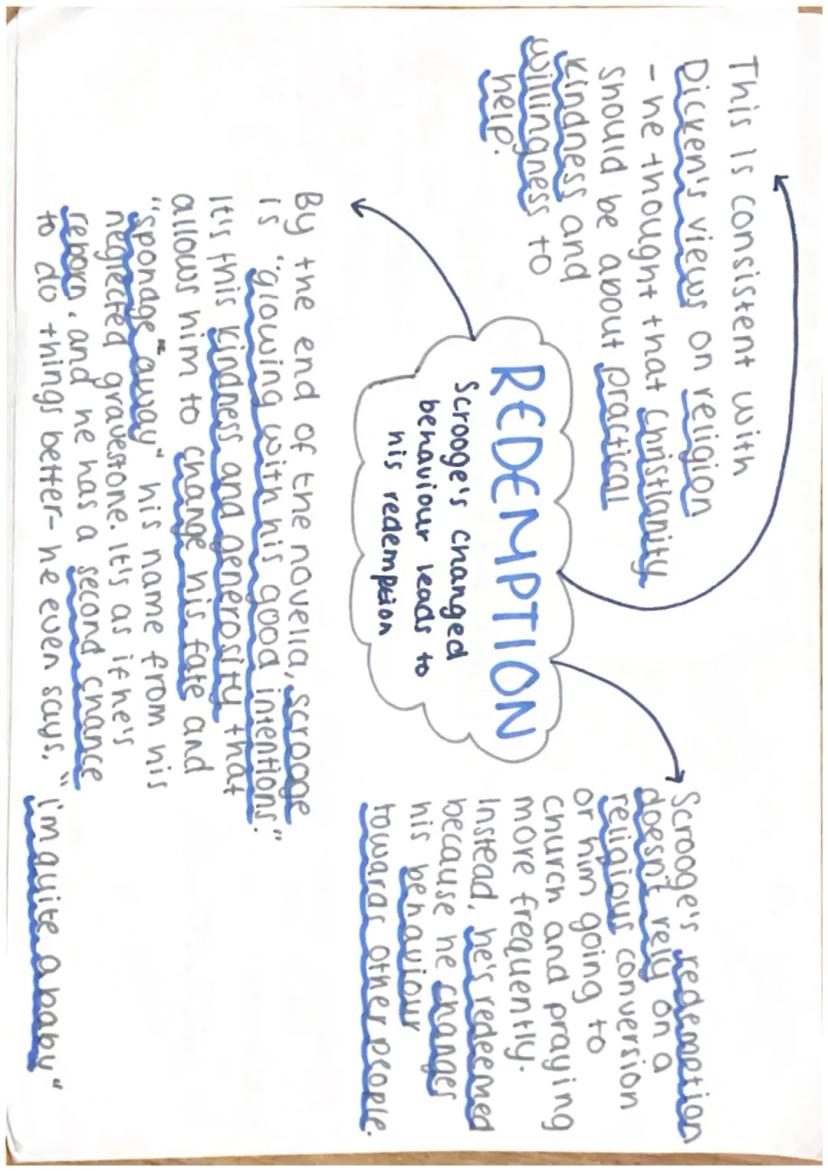 This is consistent with
Dicken's views on religion
- he thought that christianity
should be about practical
kindness and
willingness to
help.
REDEMPTION
Scrooge's changed
behaviour leads to
his redemption
Scrooge's redemption
doesn't rely on a
religious conversion
or him going to
church and praying
more frequently.
Instead, he's redeemed
because he changes
his behaviour
towards other people.
By the end of the novella, scrooge
is "glowing with his good intentions."
It's this kindness and generosity that
allows him to change his fate and
"spondge" away" his name from his
neglected gravestone. It's as if he's
reborn, and he has a second chance
to do things better- he even says, "i'm quite a baby"